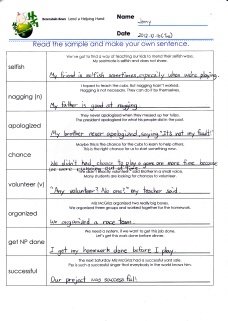 Lend a Helping Hand
Name Jenny
Date
Read the sample and make your own sentence.
We've got to find a way of teaching our kids to mend their selfish ways.
My roommate is selfish and does not share.
selfish
My friend is selfish sometimes, especially when we're playing.
I hoped to teach the cubs. But nagging hasn't worked.
Nagging is not necessary. They can do it by themselves.
nagging (n)
My father is good at nagging.
They never apologized when they messed up her tables.
The president apologized for what his people did in the past.
apologized
My brother never apologized, saying "It's not my fault!"
Maybe this is the chance for the cubs to learn to help others.
This is the right chance for us to start something new.
chance
We didn't had chance to play a game one more time because
we were running out of time.
"We didn't exactly volunteer," said Sister in a small voice.
Many students are looking for chances to volunteer.
volunteer (v)
"Any volunteer? No one?" my teacher said.
Mrs McGrizz organized two really big boxes.
We organized three groups and worked together for the homework.
organized
We organized a race team.
We need a system, if we want to get this job done.
Let's get this work done before dinner.
get NP done
I get my homework done before I play.
The next Saturday Mrs McGrizz had a successful yard sale.
Psy is such a successful singer that everybody in the world knows him.
successful
Our project was successful!